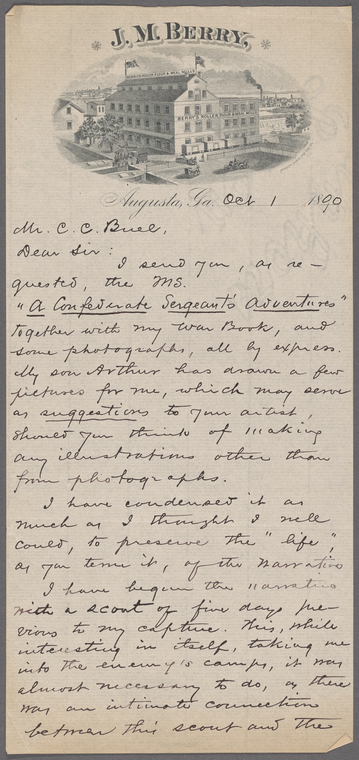 J. M. BERRY,
BERRY'S ROLLER FLOUR & MEAL MILLS
Augusta, Ga. Oct 1 1890
Mr. C. C. Buel,
Dear Sir:
I send you, as re-
quested, the MS.
"A Confederate Sergeant's Adventures"
together with my War Book, and
some photographs, all by express.
My son Arthur has drawn a few
pictures for me, which may serve
as suggestions to your artist,
should you think of making
any illustrations other than
from photographs.
I have condensed it as
much as I thought I well
could, to preserve the "life",
as you term it, of the narrative
I have begun the narrative
with a scout of five days pre-
vious to my capture. This, while
interesting in itself, taking me
into the enemy's camps, it was
almost necessary to do, as there
was an intimate connection
between this scout and the